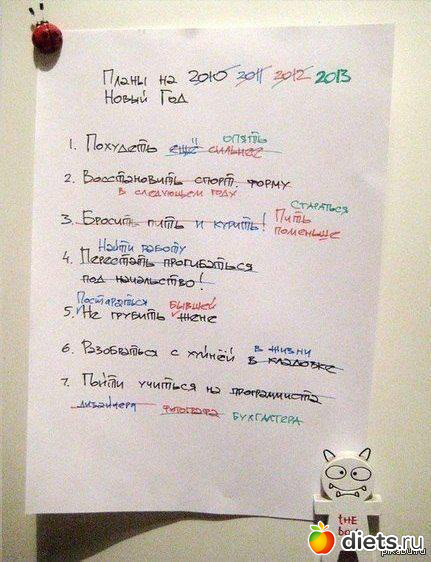 Планы на 2010 2011 2012 2013
Новый Год
опять
1. Похудеть ещё сильнее
2. Восстановить спорт. форму
в следующем году
Стараться
3. Бросить пить и курить! Пить
поменьше
Найти работу
4. Перестать прогибаться
под начальство!
Постараться бывшей
5. Не грубить жене
в жизни
6. Разобраться с хуйнёй в кладовке
7. Пойти учиться на программиста
дизайнера фотографа бухгалтера
THE
diets.ru